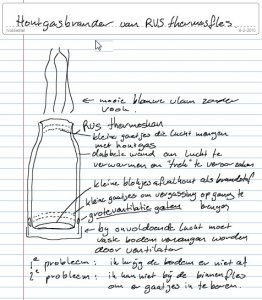 Houtgasbrander van RVS thermosfles.
6-2-2010
mooie blauwe vlam zonder
rook.
RVS thermoskan
kleine gaatjes die lucht mengen
met houtgas
dubbele wand om lucht te
verwarmen en "trek" te veroorzaken
kleine blokjes afvalhout als brandstof
kleine gaatjes om vergassing op gang te
brengen
grote ventilatie gaten
by onvoldoende lucht moet
vaste bodem vervangen worden
door ventilator
1e probleem: ik krijg de bodem er niet af
2e probleem: ik kan niet bij de binnenfles
om er gaatjes in te boren.